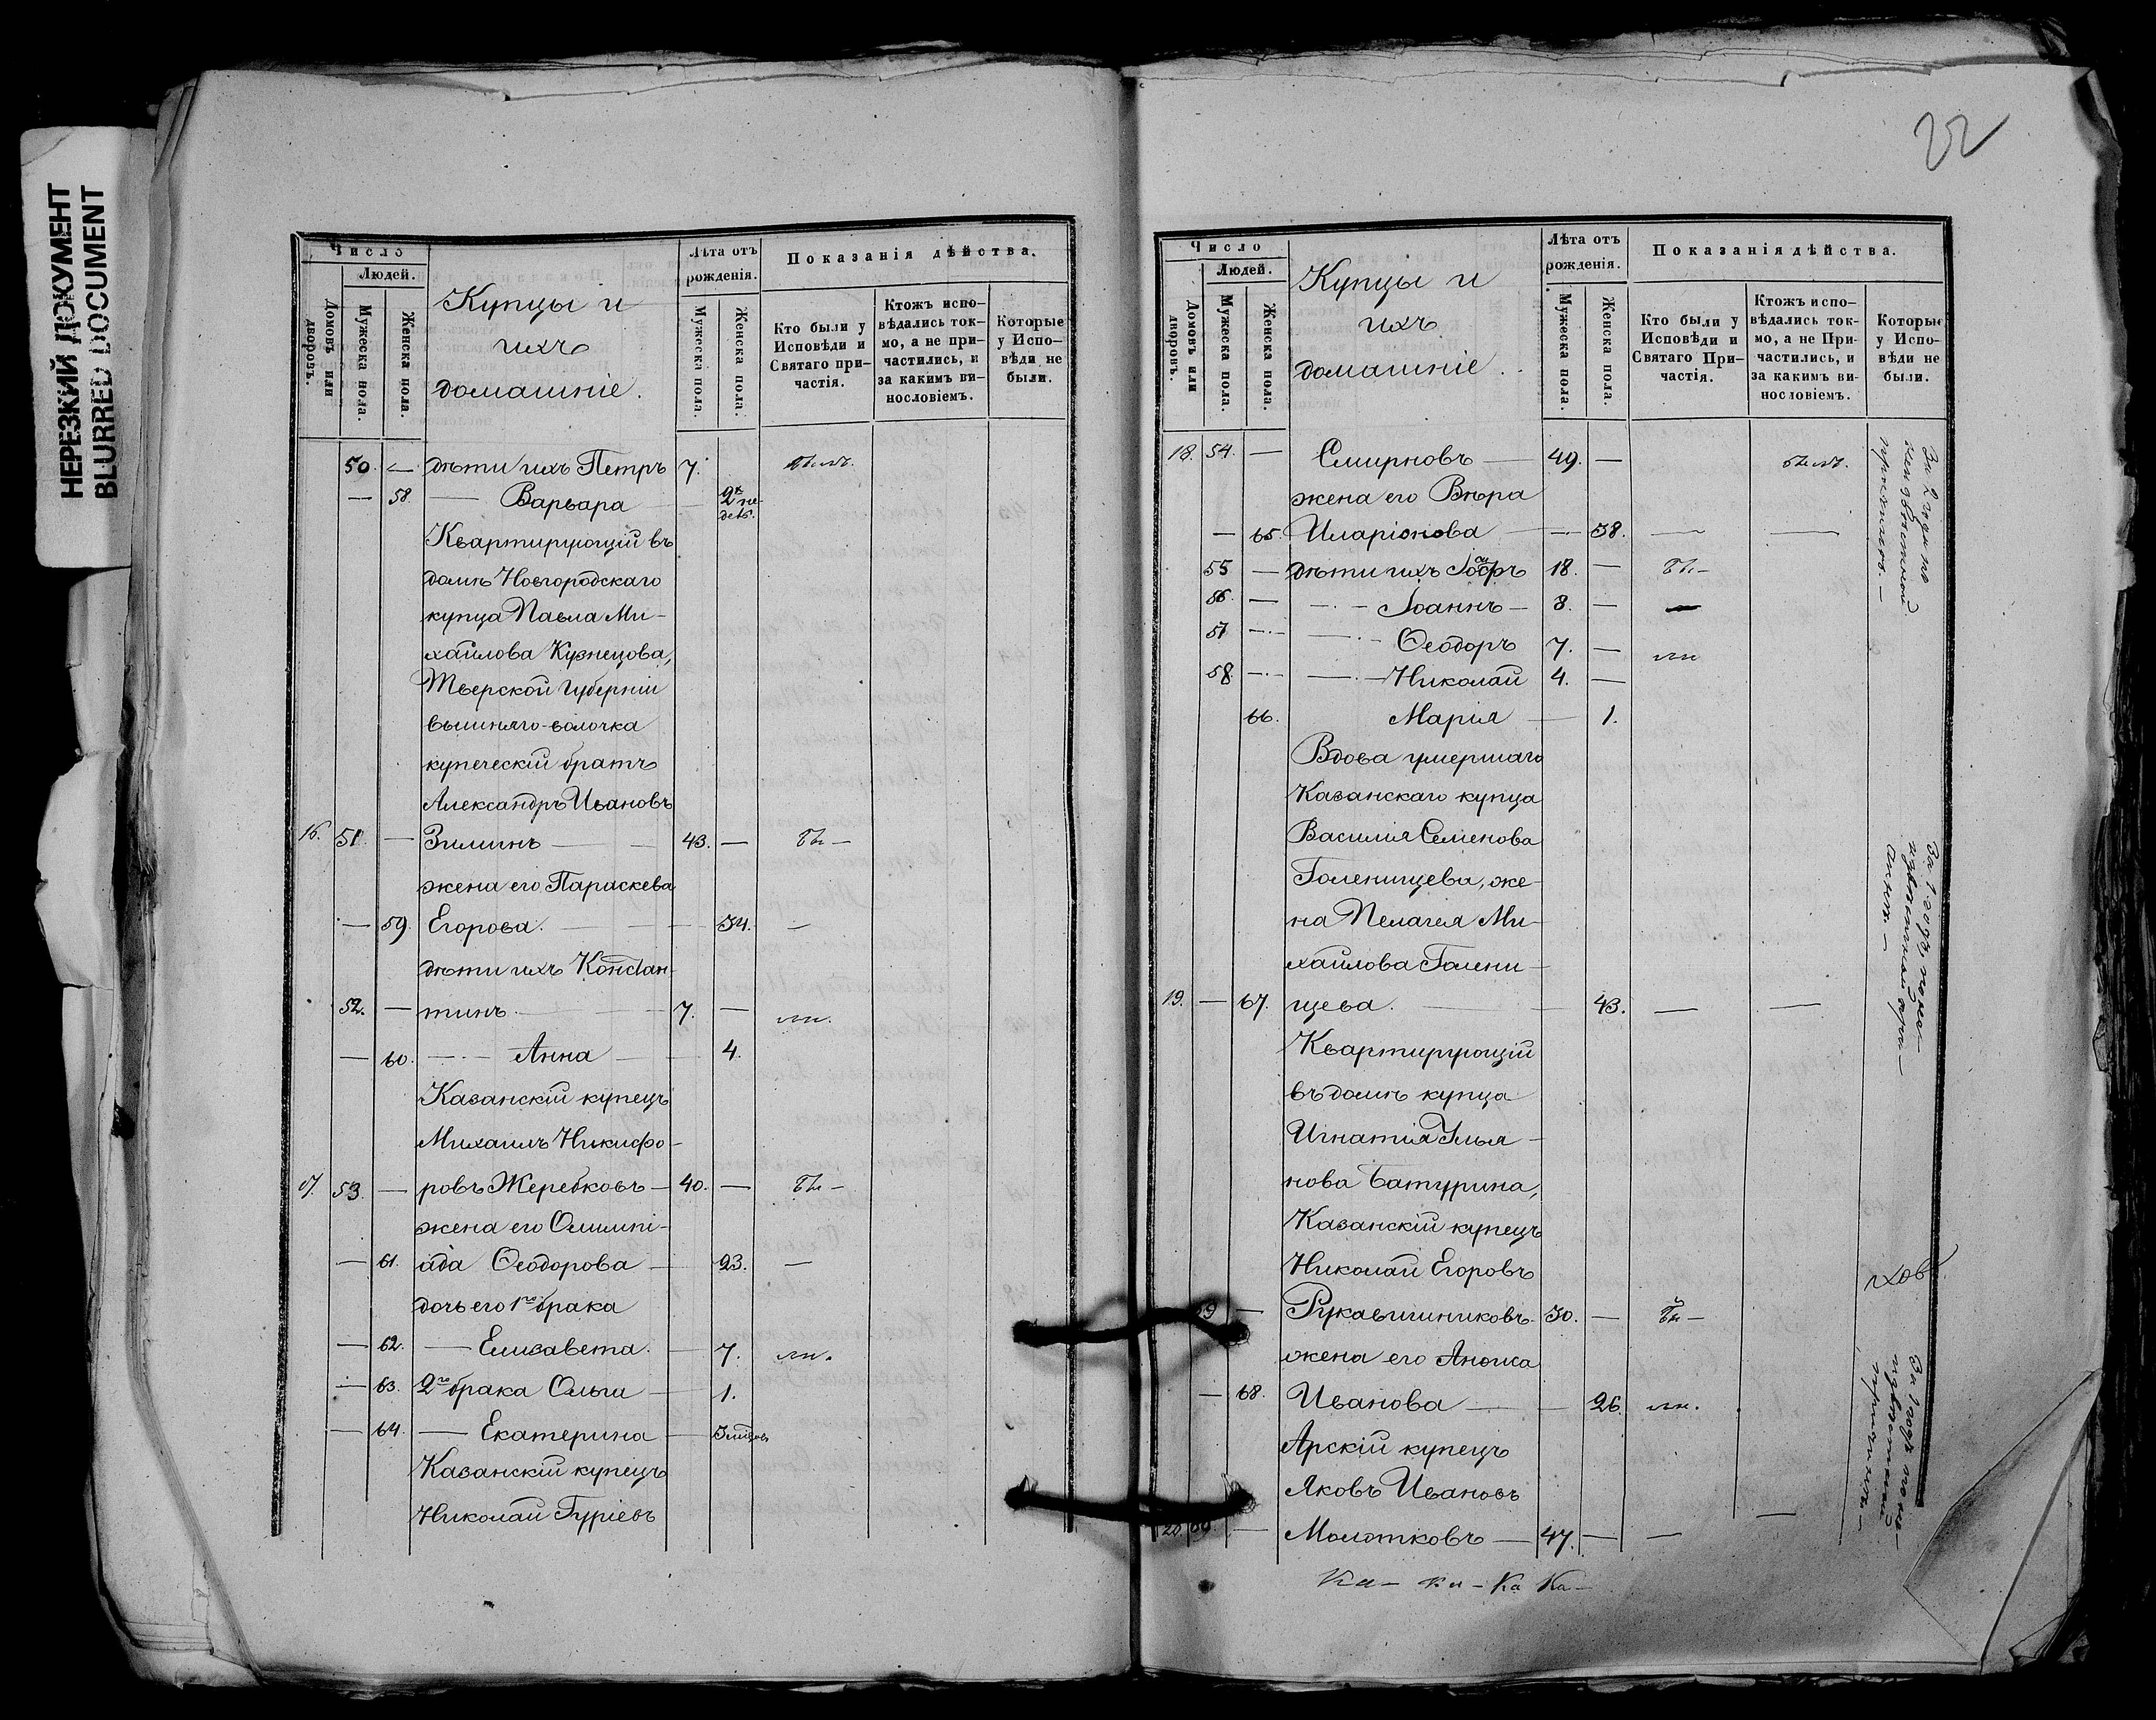 НЕРЕЗКИЙ ДОКУМЕНТ
BLURRED DOCUMENT
Число
Людей.
Домовъ или дворовъ.
Мужеска пола.
Женска пола.
Купцы и
ихъ
домашніе.
Лѣта отъ рожденія.
Мужеска пола.
Женска пола.
Показанія дѣйства.
Кто были у Исповѣди и Святаго причастія.
Ктожъ исповѣдались токмо, а не причастились, и за какимъ винословіемъ.
Которые у Исповѣди не были.
50. — дѣти ихъ Петръ 7. былъ.
— 58. — Варвара — 2х недѣль.
Квартирующій въ
домѣ Новгородскаго
купца Павла Ми-
хайлова Кузнецова,
Тверской губерніи
вышняго-волочка
купеческій братъ
Александръ Ивановъ
16. 51. — Зиминъ — 43. — бы —
жена его Параскева
— 59. Егорова. — 34. —
дѣти ихъ Констан-
52. — тинъ — 7. — ли.
— 60. — Анна — 4.
Казанскій купецъ
Михаилъ Никифо-
17. 53. — ровъ Жеребковъ — 40. — бы —
жена его Олимпі-
— 61. ада Ѳеодорова — 23. —
дочь его 1го брака
— 62. — Елизавета. — 7. ли.
— 63. 2го брака Ольга — 1.
— 64. — Екатерина —
Казанскій купецъ
Николай Гуріевъ
22
Число
Людей.
Домовъ или дворовъ.
Мужеска пола.
Женска пола.
Купцы и
ихъ
домашніе.
Лѣта отъ рожденія.
Мужеска пола.
Женска пола.
Показанія дѣйства.
Кто были у Исповѣди и Святаго Причастія.
Ктожъ исповѣдались токмо, а не Причастились, и за какимъ винословіемъ.
Которые у Исповѣди не были.
18. 54. — Смирновъ — 49. — былъ.
жена его Вѣра
— 65. Иларіонова — — 38. — —
55 — дѣти ихъ Іосифъ 18. — бы —
56. — — Іоаннъ — 8. — —
57. — — Ѳеодоръ 7. — ли
58. — — Николай 4. —
66. Марія — 1.
Вдова умершаго
Казанскаго купца
Василія Семенова
Голенищева, же-
на Пелагея Ми-
хайлова Голени-
19. — 67. щева. — 43. — —
Квартирующій
въ домѣ купца
Игнатія Улья-
нова Батурина,
Казанскій купецъ
Николай Егоровъ
59 — Рукавишниковъ. 30. — бы —
жена его Аноиса
— 68. Иванова — — 26. ли.
Арскій купецъ
Яковъ Ивановъ
20. 60. — Молотковъ — 47. — — —
За 2 года по
причинѣ. —
За 1 годъ
За 1 годъ
Ка — Ка — Ка Ка —